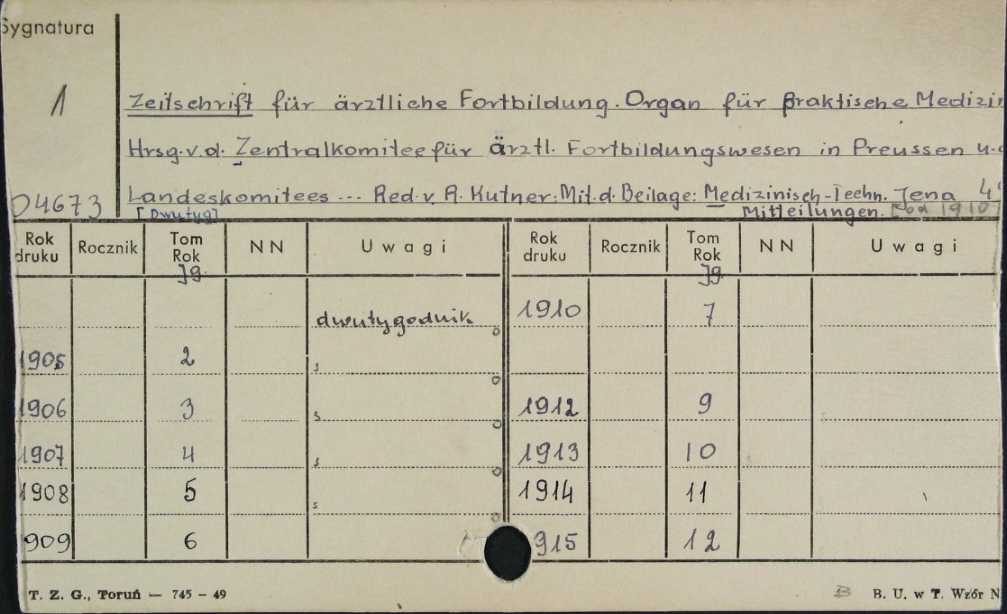 Sygnatura
1
Zeitschrift für ärztliche Fortbildung. Organ für praktische Medizin
Hrsg. v. d. Zentralkomitee für ärztl. Fortbildungswesen in Preussen u.
04673 Landeskomitees ... Red. v. R. Kutner. Mit. d. Beilage: Medizinisch-Techn. Jena 4°
[Dwutyg] Mitteilungen. [od 1910]
Rok druku Rocznik Tom Rok Jg. NN Uwagi Rok druku Rocznik Tom Rok Jg. NN Uwagi
dwutygodnik 1910 7
1905 2
1906 3 1912 9
1907 4 1913 10
1908 5 1914 11
909 6 915 12
T. Z. G., Toruń — 745 - 49 B B. U. w T. Wzór N